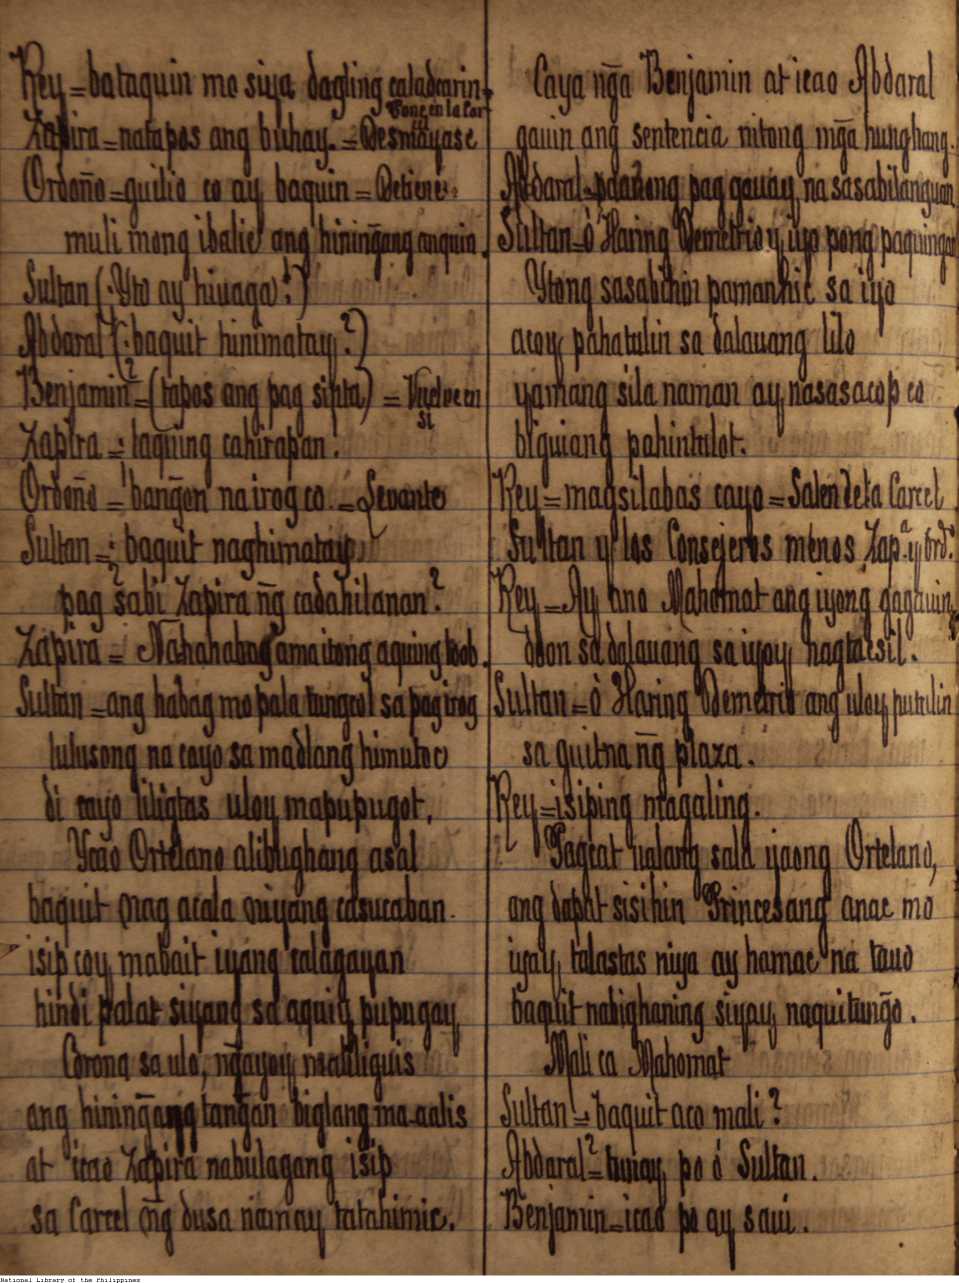 Rey = bataquin mo siya dagling caladcarin.
Pone en la Car
Zapira = natapos ang buhay. = Desmayase
Ordoño = guilio co ay baquin = Detiene.
muli mong ibalic ang hiningang
Sultan (Yto ay hiuaga!)
Abdaral (baquit hinimatay?)
Benjamin = (tapos ang pag sinta) = Vuelve en
si
Zapira = laquing cahirapan.
Ordoño = bangon na irog co. = Levante
Sultan = baquit naghimatay,
pag sabi Zapira ñg cadahilanan?
Zapira = Nahahabag ama itong aquing loob.
Sultan = ang habag mo pala tungcol sa pag irog
lulusong na cayo sa madlang himutoc
di cayo liligtas uloy mapupugot,
Ycao Ortelano alibughang asal
baquit nag acala niyang casucaban.
isip coy mabait iyang calagayan
hindi palat siyang sa aquiy pupugay
Corona sa ulo, ngayoy maliliguis
ang hiningang tangan biglang ma-aalis
at icao Zapira nabulagang isip
sa Carcel ñg dusa namay tatahimic.
Caya nga Benjamin at icao Abdaral
gauin ang sentencia nitong mga hunghang.
Abdaral = pag gauay na sasabilangguan
Sultan = ò Haring Demetrio y iyo pong paquingan
Ytong sasabihin pamanhic sa iyo
acoy pahatulin sa dalauang lilo
yamang sila naman ay nasasacop co
biguiang pahintulot.
Rey = magsilabas cayo = Salen de la Carcel
Sultan y los Consejeros menos Zapª y Ordº
Rey = Ay ano Mahomat ang iyong gagauin
doon sa dalauang sa iyoy nagtacsil.
Sultan = ò Haring Demetrio ang uloy putulin
sa guitna ñg plaza.
Rey = isiping magaling.
Pagcat ualang sala yaong Ortelano,
ang dapat sisihin Princesang anac mo
iyay talastas niya ay hamac na tauo
baquit nabighaning siyay naquitungo.
Mali ca Mahomat
Sultan = baquit aco mali?
Abdaral = tunay po ó Sultan.
Benjamin = icao po ay saui.
National Library of the Philippines